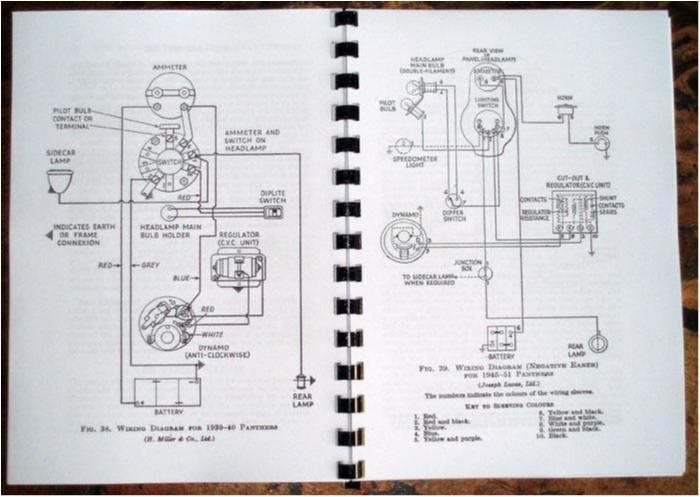 AMMETER
PILOT BULB
CONTACT OR
TERMINAL
AMMETER AND
SWITCH ON
HEADLAMP
SIDECAR
LAMP
SWITCH
RED
DIPLITE
SWITCH
INDICATES EARTH
OR FRAME
CONNEXION
HEADLAMP MAIN
BULB HOLDER
REGULATOR
(C.V.C. UNIT)
RED
GREY
BLUE
RED
WHITE
DYNAMO
(ANTI-CLOCKWISE)
REAR
LAMP
BATTERY
FIG. 38. WIRING DIAGRAM FOR 1939-40 PANTHERS
(H. Miller & Co., Ltd.)
HEADLAMP
MAIN BULB
(DOUBLE-FILAMENT)
REAR VIEW
OF
PANEL (HEADLAMP)
AMMETER
PILOT
BULB
LIGHTING
SWITCH
HORN
HORN
PUSH
SPEEDOMETER
LIGHT
CUT-OUT &
REGULATOR (C.V.C. UNIT)
CONTACTS
SHUNT
CONTACTS
SERIES
REGULATOR
RESISTANCE
DIPPER
SWITCH
DYNAMO
JUNCTION
BOX
TO SIDECAR LAMP
WHEN REQUIRED
BATTERY
REAR
LAMP
FIG. 39. WIRING DIAGRAM (NEGATIVE EARTH)
FOR 1945-51 PANTHERS
(Joseph Lucas, Ltd.)
The numbers indicate the colours of the wiring sleeves.
KEY TO SLEEVING COLOURS
1. Red.
2. Red and black.
3. Yellow.
4. Blue.
5. Yellow and purple.
6. Yellow and black.
7. Blue and white.
8. White and purple.
9. Green and black.
10. Black.